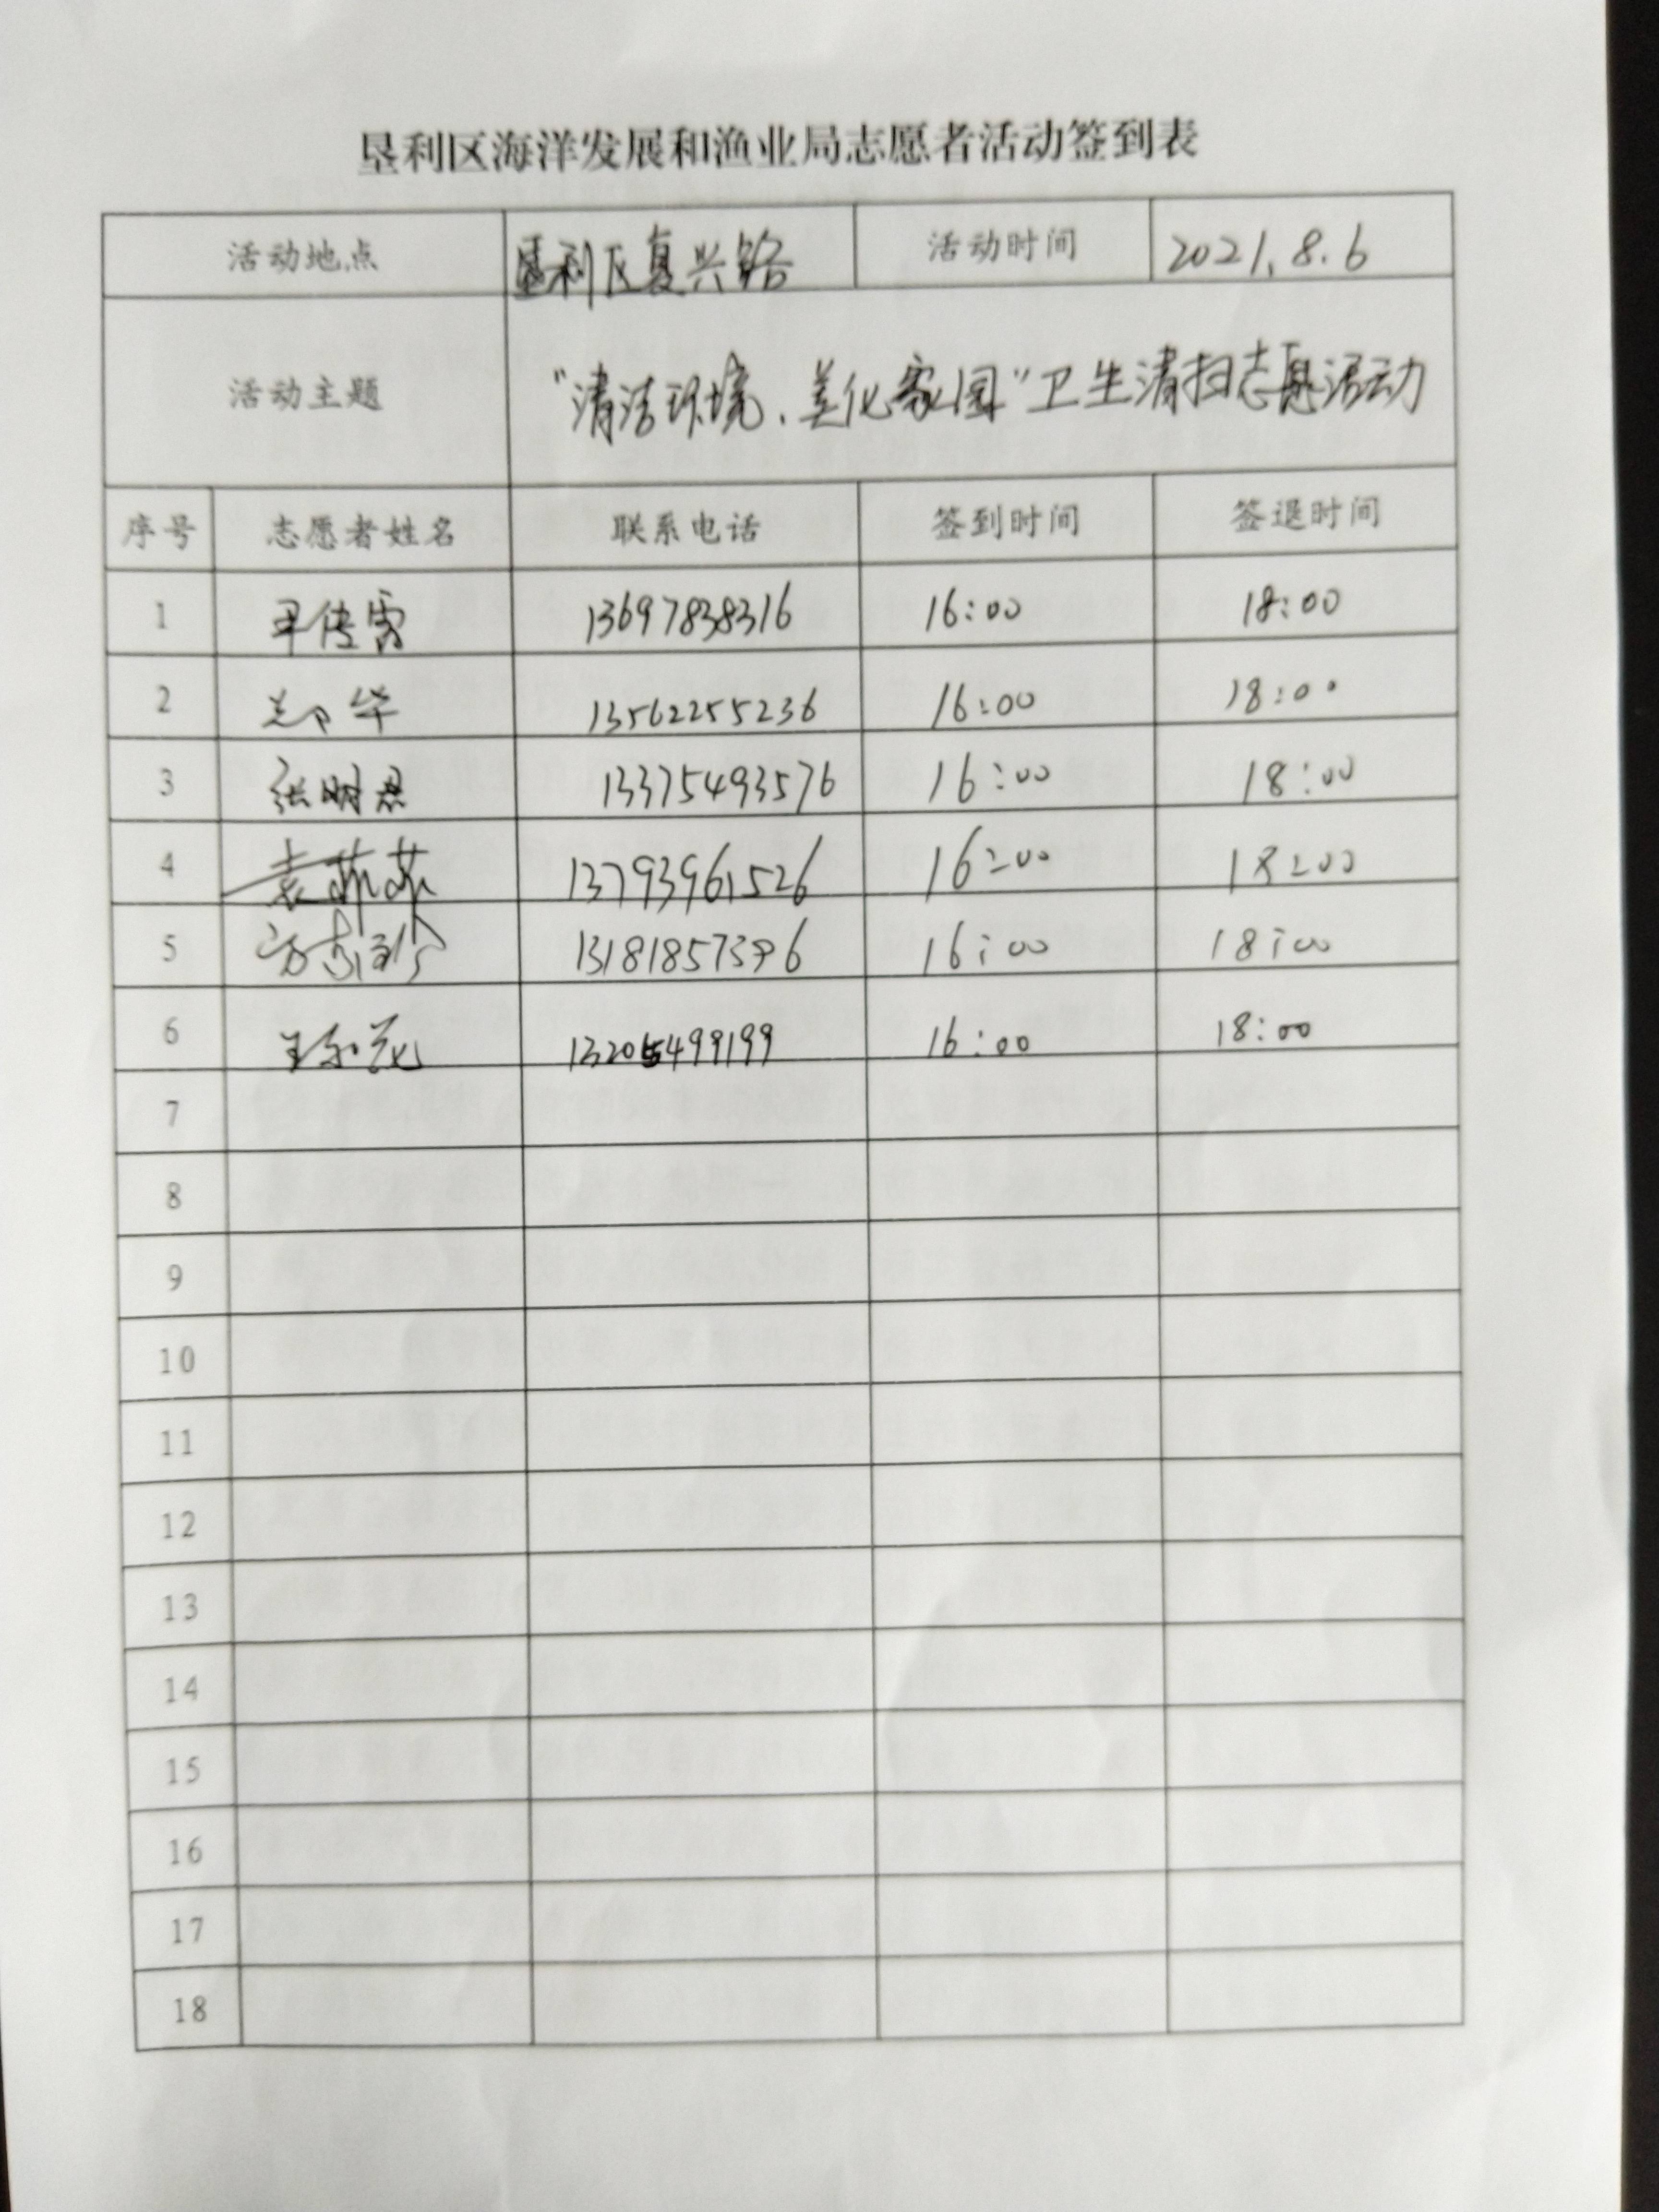 垦利区海洋发展和渔业局志愿者活动签到表
活动地点 垦利区复兴路 活动时间 2021.8.6
活动主题 "清洁环境、美化家园"卫生清扫志愿活动
序号 志愿者姓名 联系电话 签到时间 签退时间
1 13697838316 16:00 18:00
2 郑华 13562255236 16:00 18:00
3 13375493576 16:00 18:00
4 袁苏苏 13793961526 16:00 18:00
5 16:00 18:00
6 13205499199 16:00 18:00
7
8
9
10
11
12
13
14
15
16
17
18